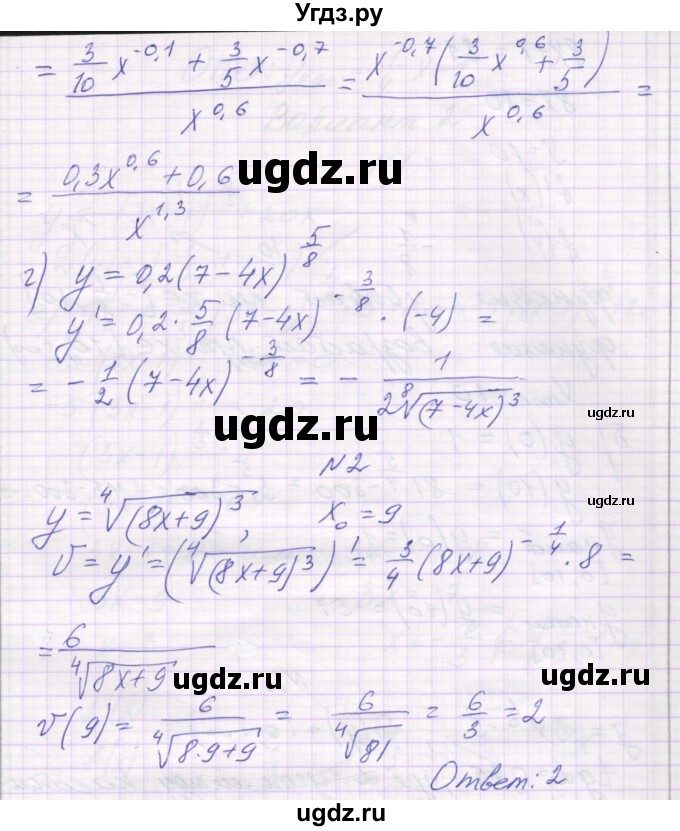 Угдз.ру
= (3/10 x^(-0,1) + 3/5 x^(-0,7)) / x^(0,6) = x^(-0,7) (3/10 x^(0,6) + 3/5) / x^(0,6) =
ugdz.ru
= (0,3x^(0,6) + 0,6) / x^(1,3)
ugdz.ru
г) y = 0,2(7-4x)^(5/8)
y' = 0,2 · 5/8 (7-4x)^(-3/8) · (-4) =
= - 1/2 (7-4x)^(-3/8) = - 1 / (2 ⁸√(7-4x)³)
ugdz.ru
ugdz.ru
N2
y = ⁴√(8x+9)³, x₀ = 9
ugdz.ru
v = y' = (⁴√(8x+9)³)' = 3/4 (8x+9)^(-1/4) · 8 =
= 6 / ⁴√(8x+9)
ugdz.ru
ugdz.ru
v(9) = 6 / ⁴√(8·9+9) = 6 / ⁴√81 = 6/3 = 2
Ответ: 2
ugdz.ru